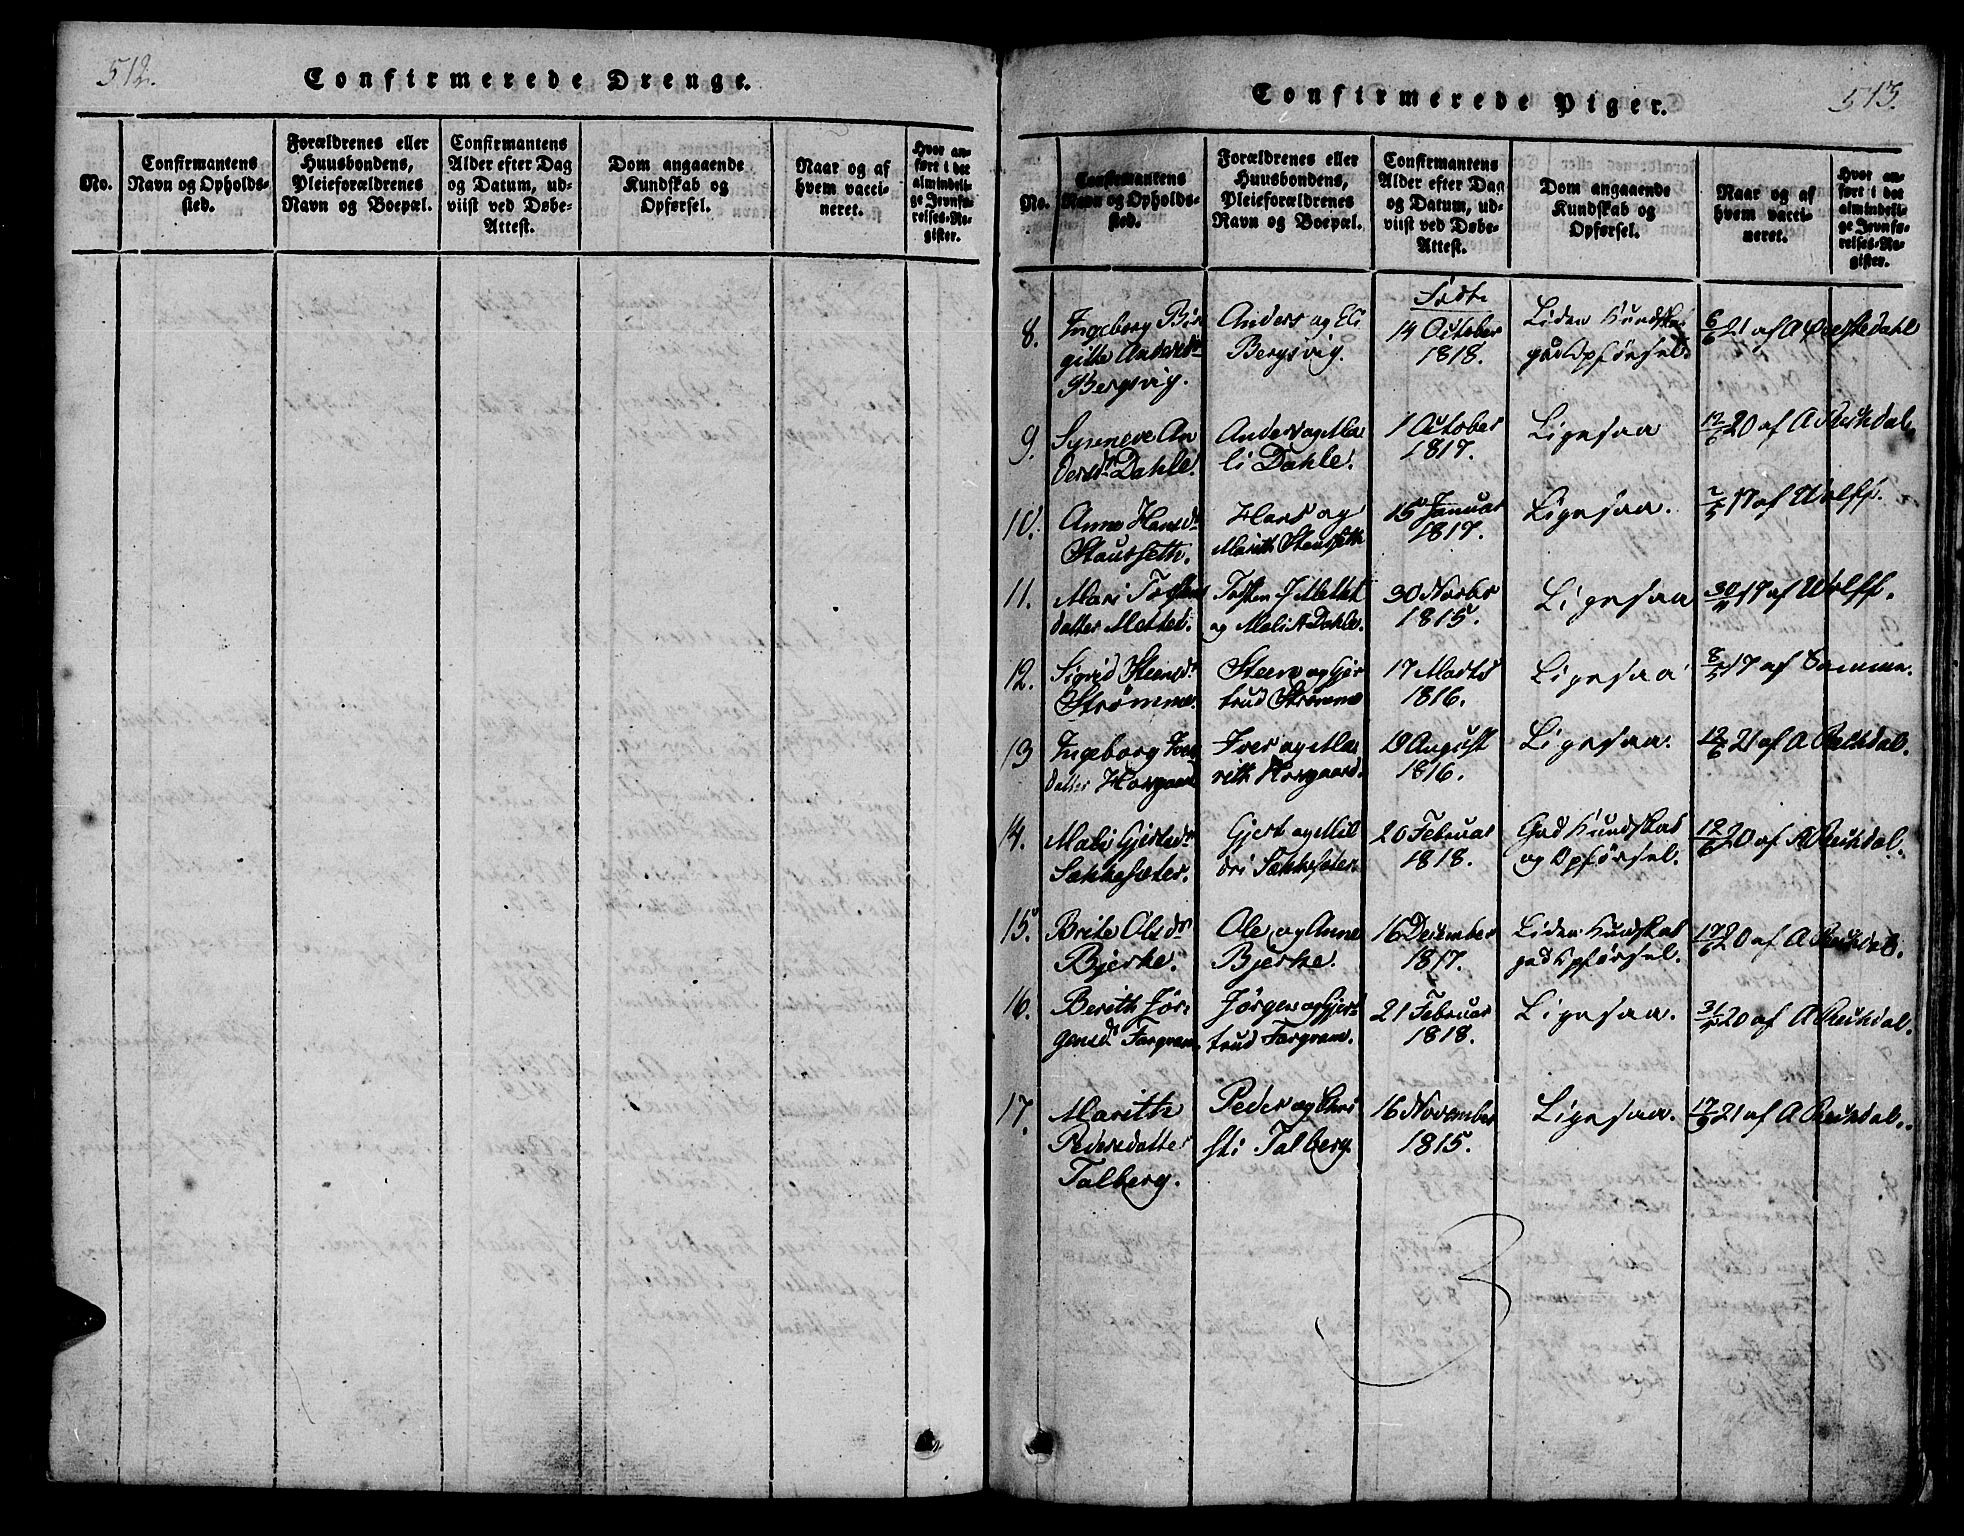 512.
Confirmerede Drenge.
No.
Confirmantens
Navn og Opholds-
sted.
Forældrenes eller
Huusbondens,
Pleieforældrenes
Navn og Boepæl.
Confirmantens
Alder efter Dag
og Datum, ud-
viist ved Døbe-
Attest.
Dom angaaende
Kundskab og
Opførsel.
Naar og af
hvem vacci-
neret.
Hvor an-
ført i det
almindeli-
ge Jevnfø-
relses-Re-
gister.
513.
Confirmerede Piger.
No.
Confirmantens
Navn og Opholds-
sted.
Forældrenes eller
Huusbondens,
Pleieforældrenes
Navn og Boepæl.
Confirmantens
Alder efter Dag
og Datum, ud-
viist ved Døbe-
Attest.
Dom angaaende
Kundskab og
Opførsel.
Naar og af
hvem vacci-
neret.
Hvor an-
ført i det
almindeli-
ge Jevnfø-
relses-Re-
gister.
8.
Ingeborg Bir
gitte Andersdr
Bergsvig.
Anders og Eli
Bergsvig.
Født
14 October
1818.
Liden Kundskab
god Opførsel.
6/6 21 af A
9.
Synneve An
dersdr Dahle.
Anders og Ma
li Dahle.
1 October
1817.
Ligesaa
12/6 20 af A
10.
Anne Hansdr
Staurseth.
Hans og
Marith Staurseth
15 Januar
1817.
Ligesaa.
17 af Wolff.
11.
Mari Tosten
datter Mettet.
Tosten J Mettet
og Mali A Dahle.
30 Novbr
1815.
Ligesaa
17 af Wolff.
12.
Sigrid Steensdr
Strømme.
Steen og Gjer
trud Strømme
17 Marts
1816.
Ligesaa
8/5 17 af Samme.
13
Ingeborg Ivers
datter Horsgaard
Iver og Ma
rith Horsgaard.
19 August
1816.
Ligesaa.
12/6 21 af A
14.
Mali Gjertsdr
Sækkesæter.
Gjert og Mil
dri Sækkesæter.
20 Februar
1818.
God Kundskab
og Opførsel.
12/6 20 af A
15.
Brite Olsdr
Bjerke.
Ole og Anne
Bjerke.
16 December
1817.
Liden Kundskab
god Opførsel.
17/6 20 af A
16.
Berith Jør
gensdr Fargram.
Jørgen og Gjer
trud Fargram.
21 Februar
1818.
Ligesaa.
20 af A
17.
Marith
Pedersdatter
Talberg.
Peder og Chri
sti Talberg.
16 November
1815.
Ligesaa.
21 af A